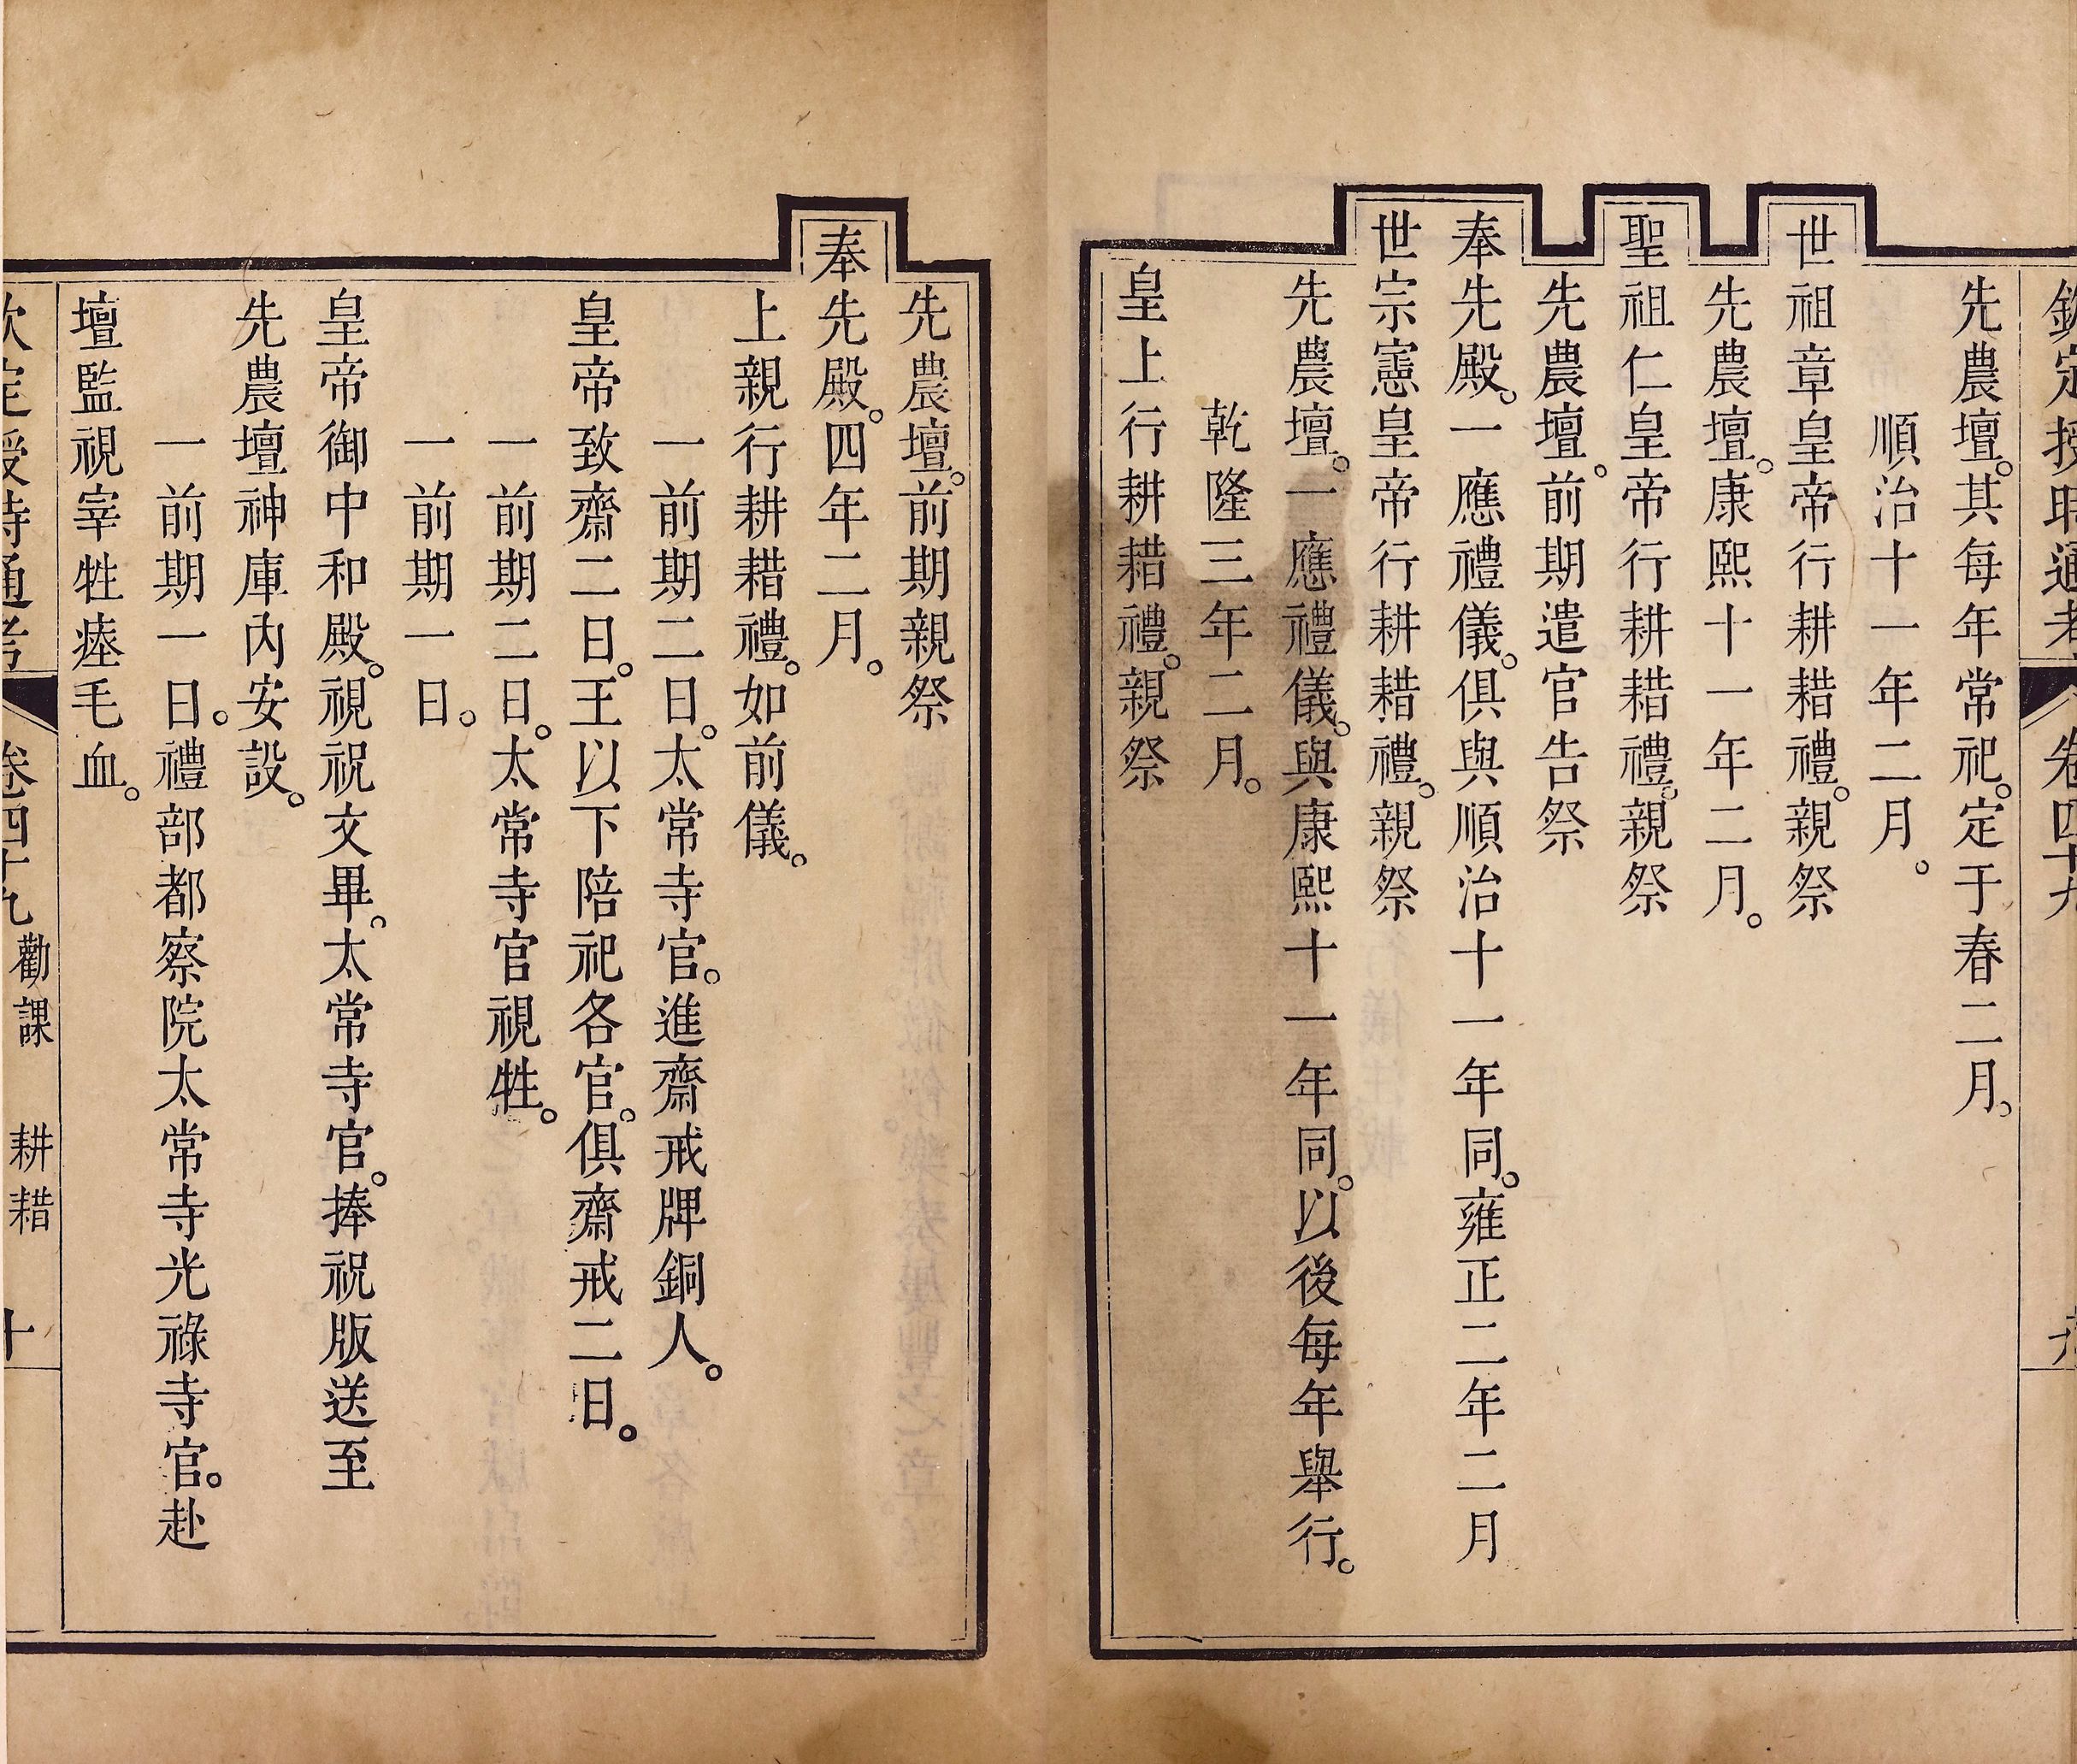 欽定授時通考 卷四十九
先農壇。其每年常祀。定于春二月。
順治十一年二月。
世祖章皇帝行耕耤禮。親祭
先農壇。康熙十一年二月。
聖祖仁皇帝行耕耤禮。親祭
先農壇。前期遣官告祭
奉先殿。一應禮儀。俱與順治十一年同。雍正二年二月
世宗憲皇帝行耕耤禮。親祭
先農壇。一應禮儀。與康熙十一年同。以後每年舉行。
乾隆三年二月。
皇上行耕耤禮。親祭
先農壇。前期親祭
奉先殿。四年二月。
上親行耕耤禮。如前儀。
一前期二日。太常寺官。進齋戒牌銅人。
皇帝致齋二日。王以下陪祀各官。俱齋戒二日。
一前期二日。太常寺官視牲。
一前期一日。
皇帝御中和殿。視祝文畢。太常寺官。捧祝版送至
先農壇神庫內安設。
一前期一日。禮部都察院太常寺光祿寺官。赴
壇監視宰牲瘞毛血。
欽定授時通考 卷四十九 勸課 耕耤 十